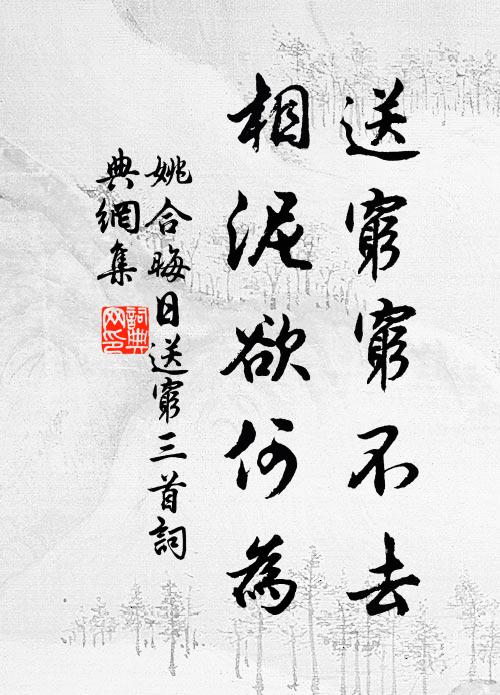 送窮窮不去
相泥欲何為
姚合晦日送窮三首詞
典網集
詞典
网印